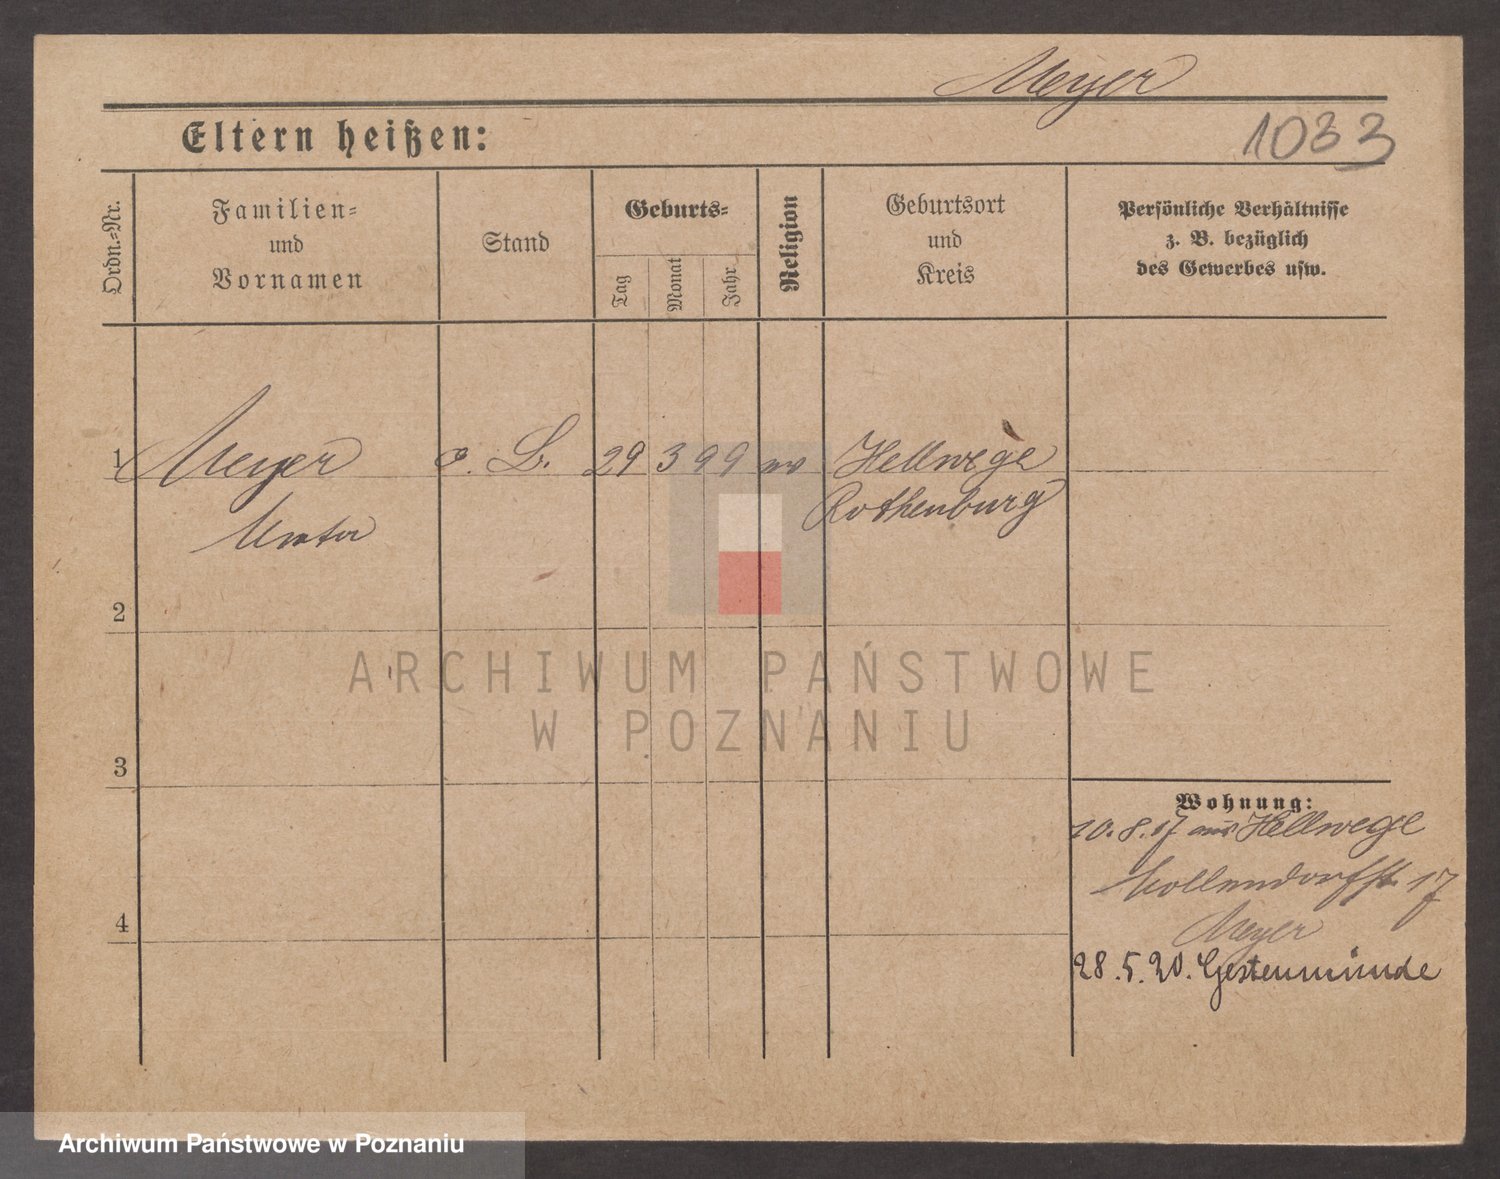 Meyer
1033
Eltern heißen:
Ordn.=Nr.
Familien=
und
Vornamen
Stand
Geburts=
Tag
Monat
Jahr
Religion
Geburtsort
und
Kreis
Persönliche Verhältnisse
z. B. bezüglich
des Gewerbes usw.
1 Meyer 29 3 99 ev Hellwege
Rothenburg
2
3
4
Wohnung:
10.8.17 aus Hellwege
Meyer
28.5.20. Gestenmünde
ARCHIWUM PAŃSTWOWE
W POZNANIU
Archiwum Państwowe w Poznaniu